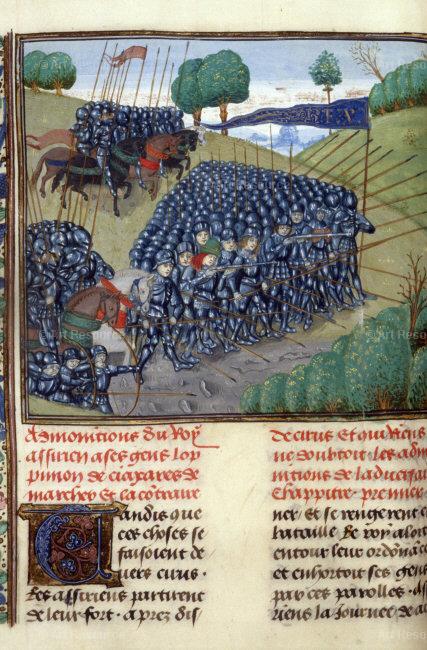 Admonitions du Roy
assirien a ses gens l op
pinion de ciaxares de
marchez et sa cotraire
Tandis que
ces choses se
faisoient de
vers cirus.
Les assiriens partirent
de leur fort. aprez dis
de cirus Et qui riens
ne doubtoit. les adm
nitions de la ducesar
Chappitre premier
ner et se rengerent e
bataille. le roy aloit
entour leur ordonnace
et enhortoit ses gens
par ces parolles. assi
riens la journee de a
© Art Resource